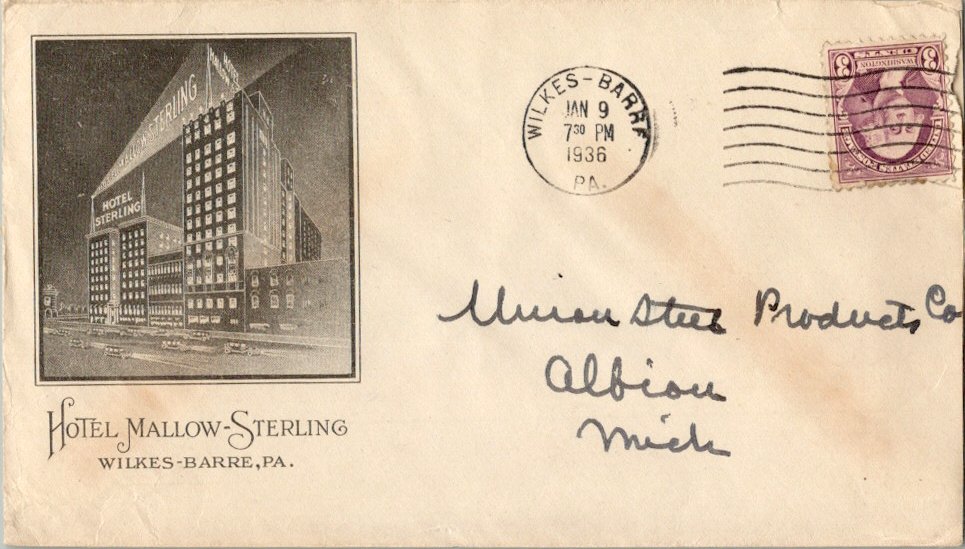 HOTEL MALLOW-STERLING
WILKES-BARRE, PA.
MALLOW-STERLING
HOTEL
STERLING
HOTEL
MALLOW
WILKES-BARRE
JAN 9
7 30 PM
1936
PA.
3 CENTS 3
WASHINGTON
Union Steel Products Co
Albion
Mich